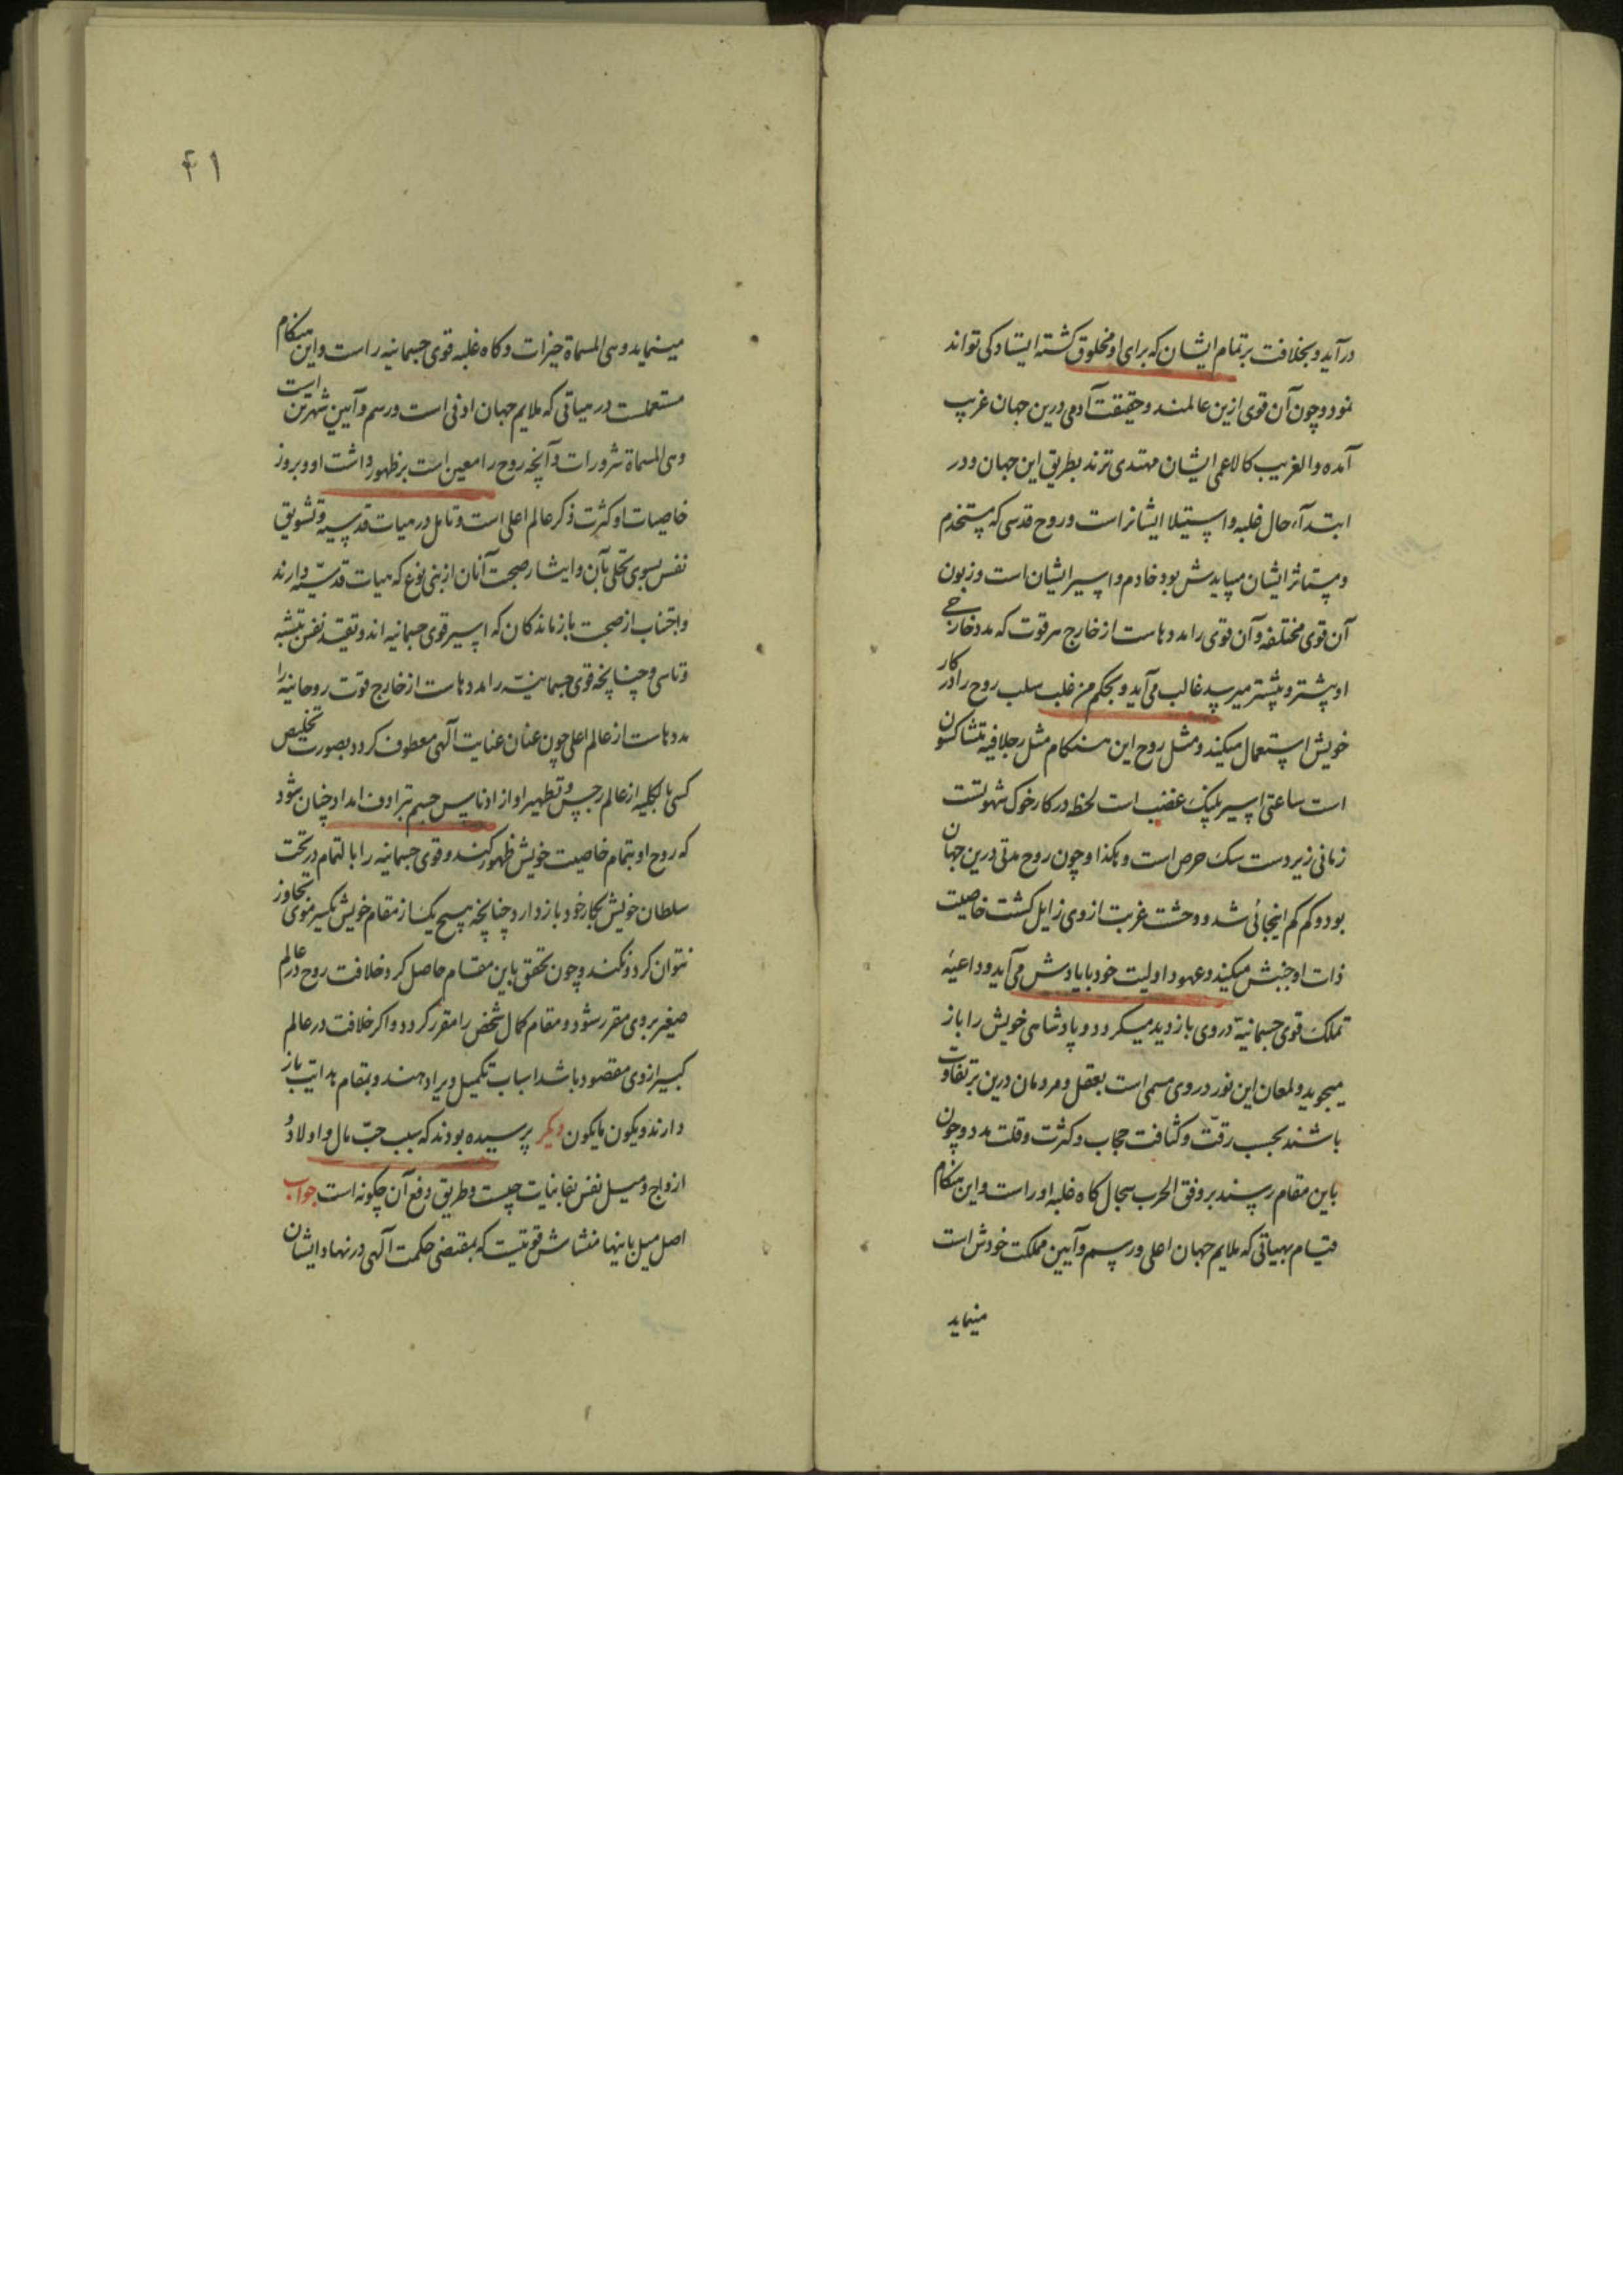 درآید و بخلافت بر تمام ایشان که برای او مخلوق کشته ایستادکی تواند
نمود و چون آن قوی ازین عالمند و حقیقت آدمی درین جهان غریب
آمده والغریب کالاعمی ایشان مهتدی ترند بطریق این جهان و در
ابتداء حال غلبه و استیلا ایشانراست و روح قدسی که مستخدم
و مستاثر ایشان میبایدش بود خادم و اسیر ایشان است و زبون
آن قوی مختلفه و آن قوی را مددهاست از خارج هر قوت که مدد خارجی
او پیشتر و بیشتر میرسد غالب می آید و بحکم من غلب سلب روح را در کار
خویش استعمال میکند و مثل روح این هنکام مثل رجلا فیه متشاکسون
است ساعتی اسیر پلنک غضب است لحظه در کار خوک شهوتست
زمانی زیر دست سک حرص است و هکذا و چون روح مدتی درین جهان
بود و کم کم اینجائی شد و وحشت غربت از وی زایل کشت خاصیت
ذات او جنبش میکند و عهود اولیت خود با یادش می آید و داعیه
تملک قوی جسمانیة در وی بازدید میکردد و پادشاهی خویش را باز
میجوید و لمعان این نور در وی مسمی است بعقل و مردمان درین بر تفاوت
باشند بحسب رقت و کثافت حجاب و کثرت و قلت مدد و چون
باین مقام رسند بر وفق الحرب سجال کاه غلبه او راست و این هنکام
قیام بهیاتی که ملایم جهان اعلی و رسم و آیین مملکت خودش است
مینماید
۴۱
مینماید و هی المسماة خیرات و کاه غلبه قوی جسمانیه راست و این هنکام
مستعملست در هیاتی که ملایم جهان ادنی است و رسم و آیین شهر تن است
و هی المسماة شرورات و آنچه روح را معین است بر ظهور داشت او و بروز
خاصیات او کثرت ذکر عالم اعلی است و تامل در هیات قدسیه و تشویق
نفس بسوی تحلی بآن و ایثار صحبت آنان از بنی نوع که هیات قدسیه دارند
و اجتناب از صحبت بازماندکان که اسیر قوی جسمانیه اند و تقید نفس بتشبه
و تاسی و چنانچه قوی جسمانیه را مددهاست از خارج قوت روحانیه را
مددهاست از عالم اعلی چون عنان عنایت آلهی معطوف کردد بصورت تخلیص
کسی بالکلیه از عالم رجس و تطهیر او از ادناس جسم ترادف امداد چنان شود
که روح او بتمام خاصیت خویش ظهور کند و قوی جسمانیه را بالتمام در تحت
سلطان خویش بکار خود باز دارد چنانچه هیچ یک از مقام خویش یکسر موی تجاوز
نتوان کرد و نکند و چون تحقق باین مقام حاصل کرد خلافت روح در عالم
صغیر بر وی مقرر شود و مقام کمال شخص را مقرر کردد و اکر خلافت در عالم
کبیر از وی مقصود باشد اسباب تکمیل ویرا دهند و بمقام هدایت باز
دارند و یکون ما یکون دیکر پرسیده بودند که سبب حب مال و اولاد و
ازواج و میل نفس بفانیات چیست و طریق دفع آن چکونه است جواب
اصل میل باینها منشاش قوتیست که بمقتضی حکمت آلهی در نهاد ایشان